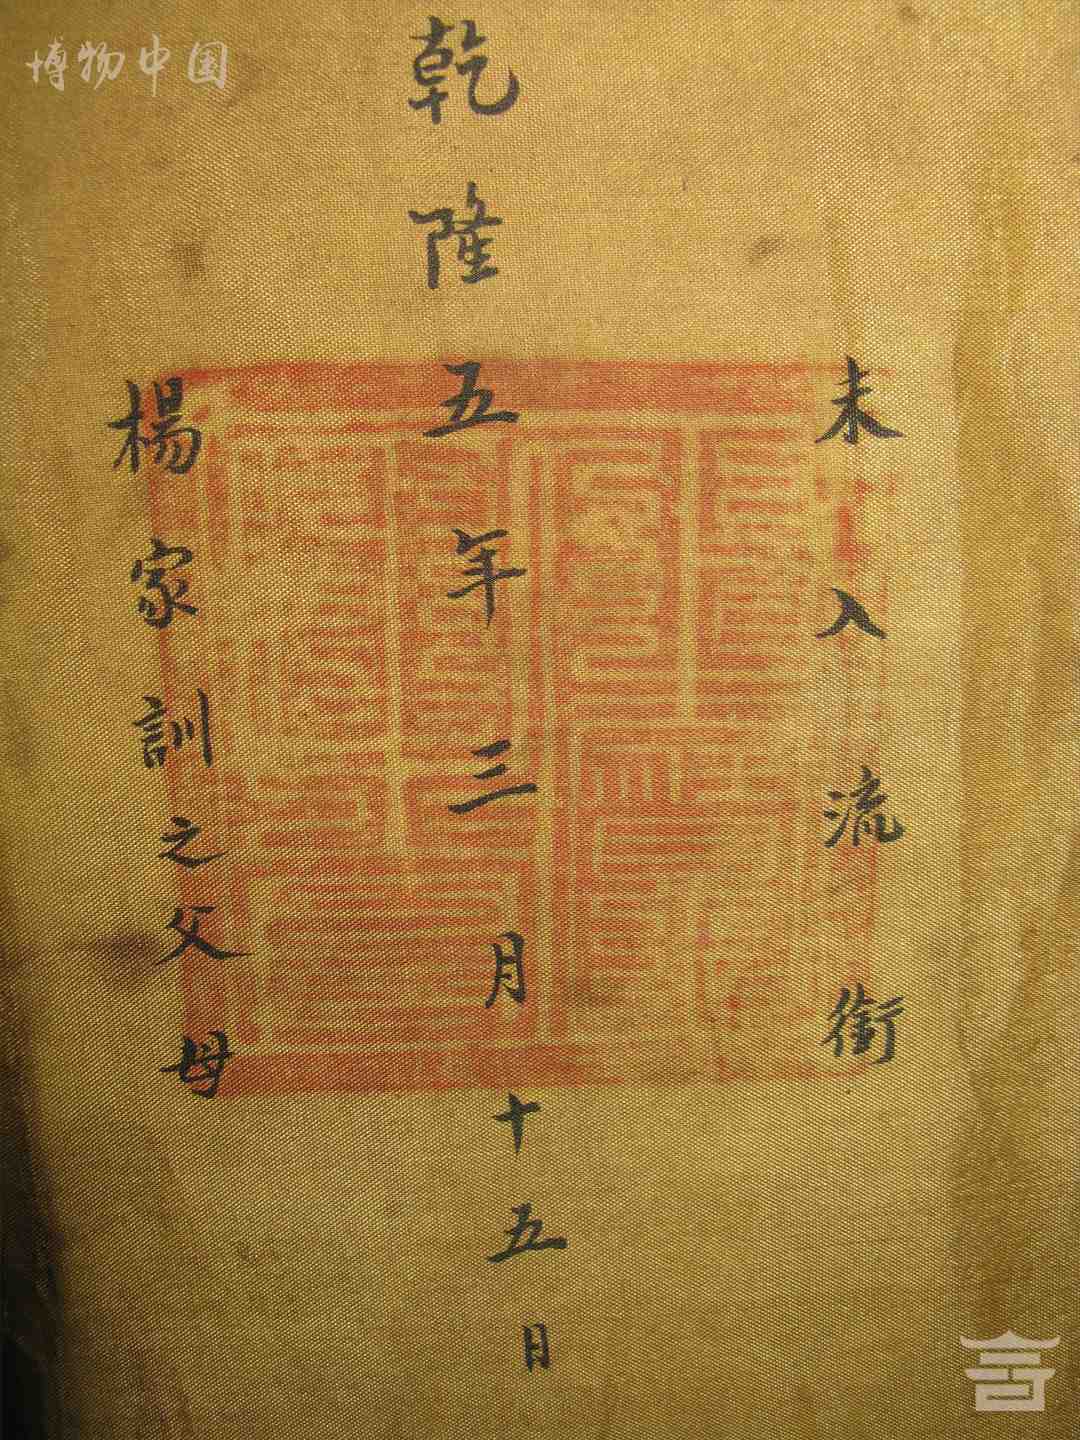 博物中国
未入流銜
乾隆五年三月十五日
楊家訓之父母